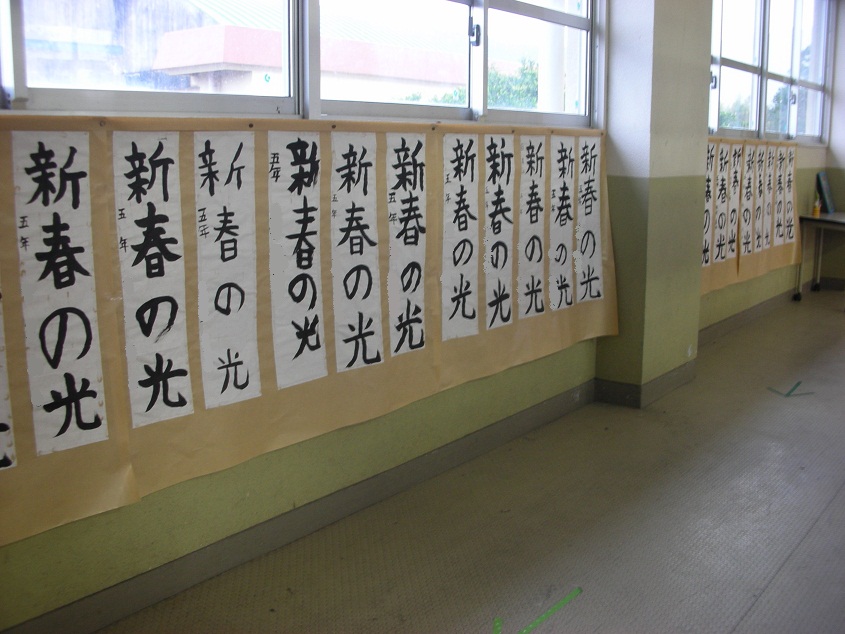 新春の光
五年
新春の光
五年
新春の光
五年
新春の光
五年
新春の光
五年
新春の光
五年
新春の光
新春の光
新春の光
新春の光
五年
新春の光
新春の光
新春の光
新春の光
新春の光
新春の光
新春の光
新春の光
新春の光